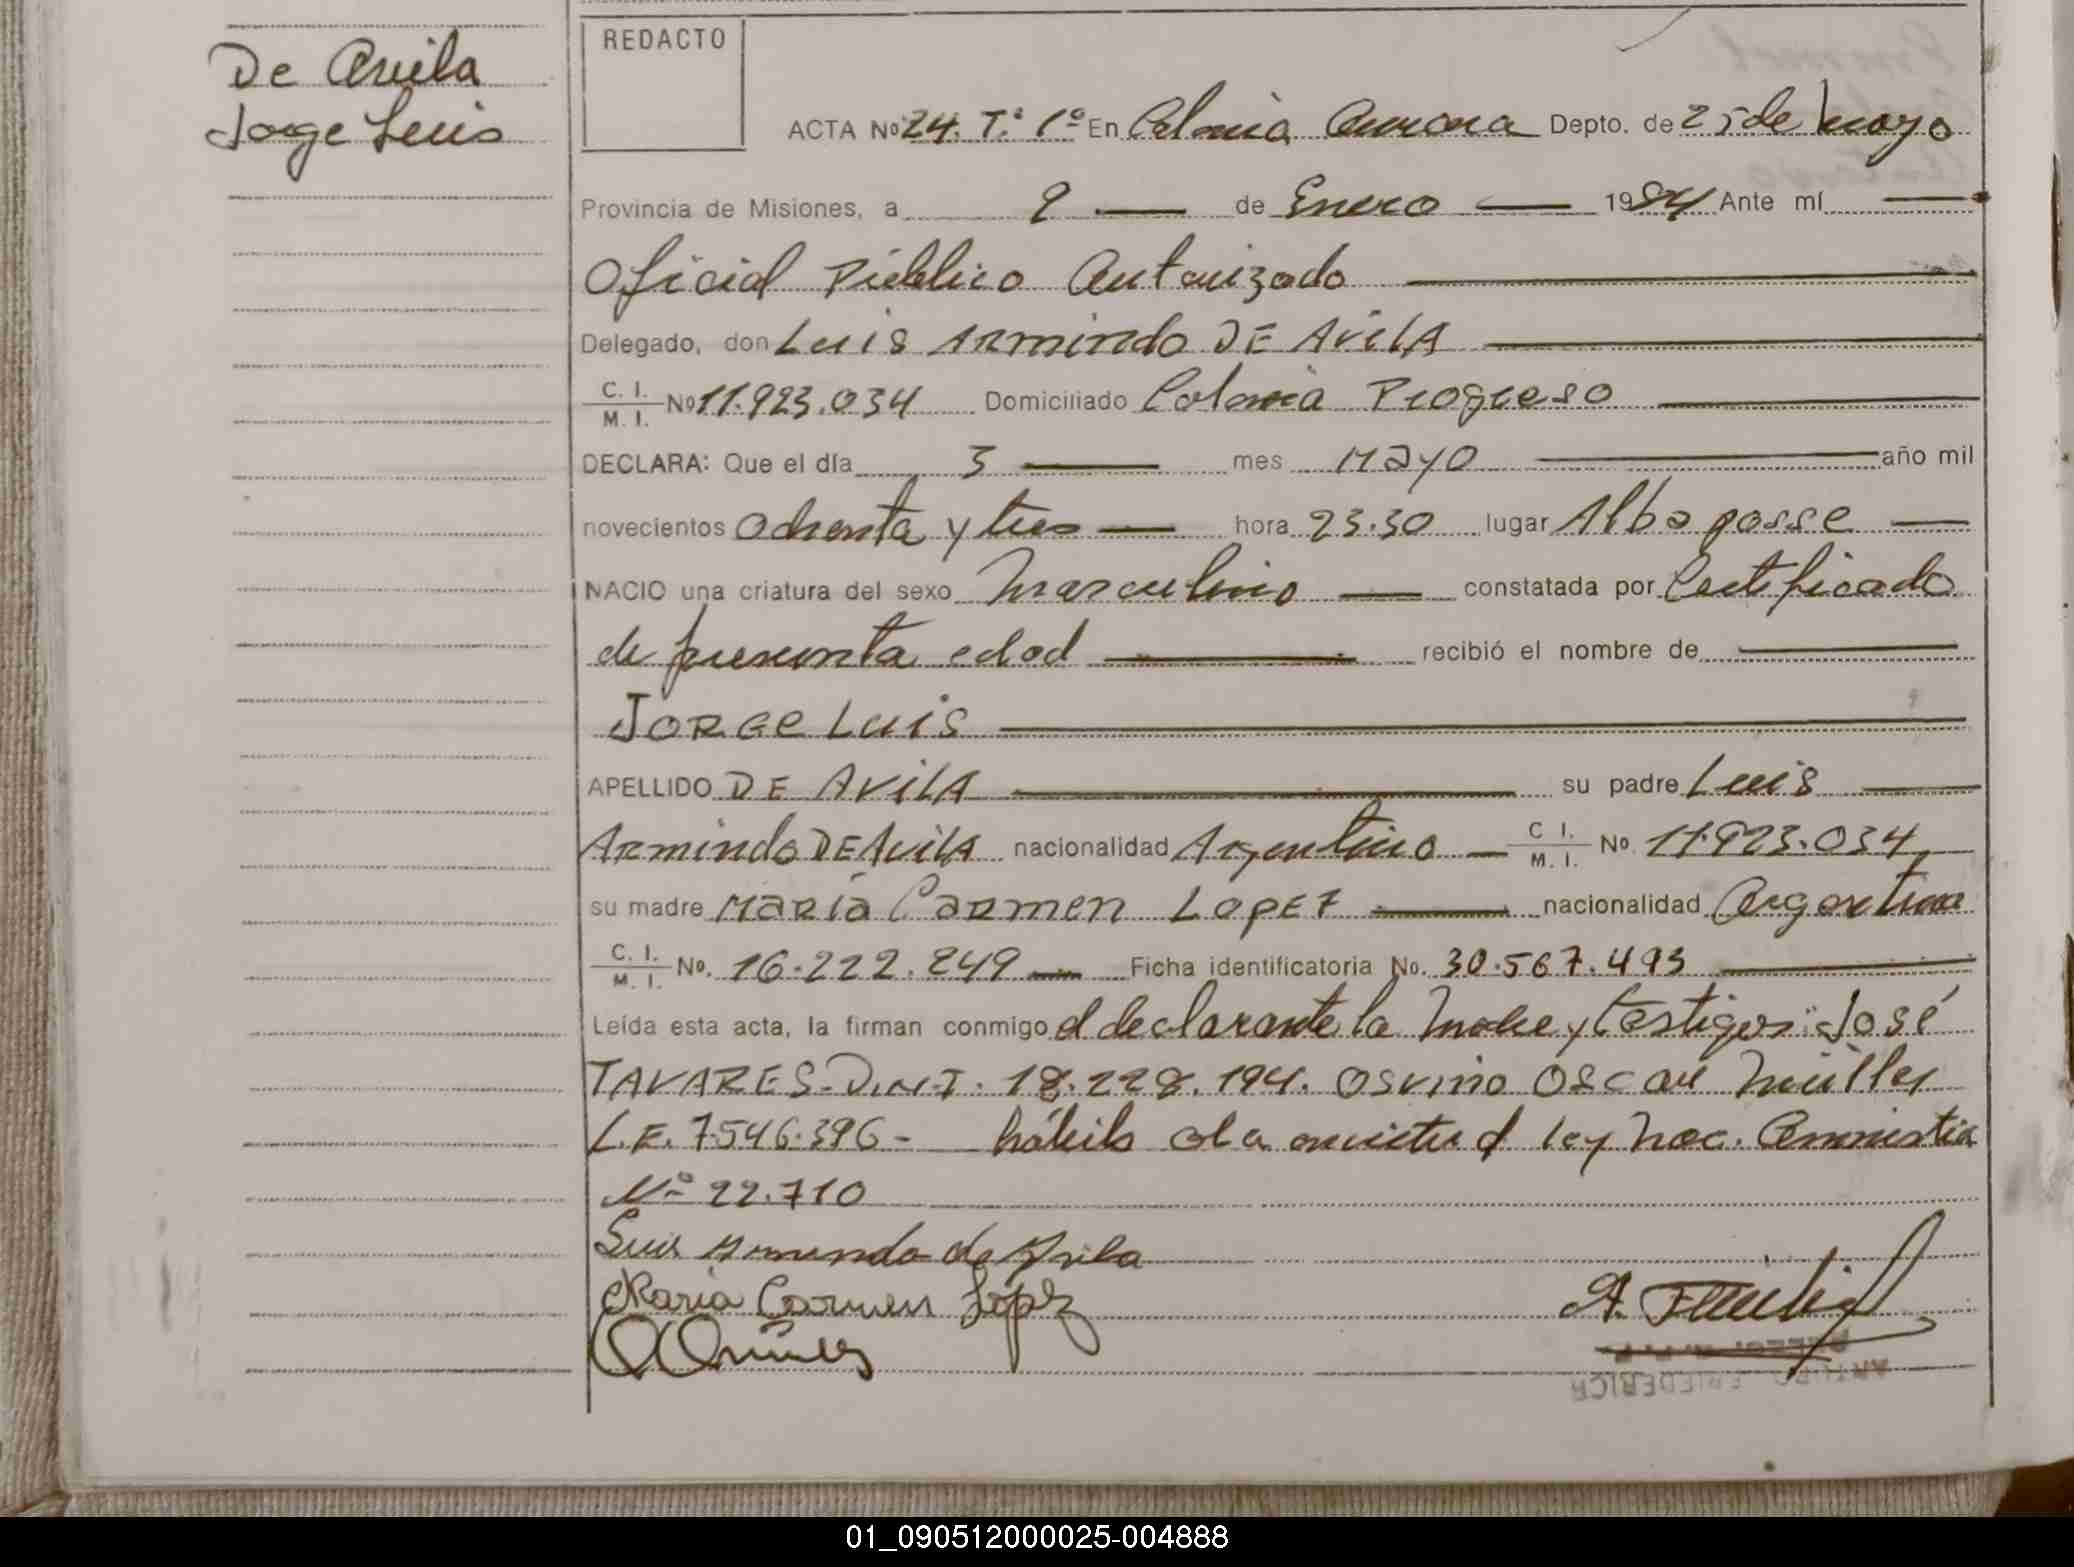 De Avila
Jorge Luis
REDACTO
ACTA Nº 24. Tº 1º En Colonia Aurora Depto. de 25 de Mayo
Provincia de Misiones, a 9 de Enero 1984 Ante mí
Oficial Público Autorizado
Delegado, don Luis Armindo DE AVILA
C. I.
M. I. Nº 11.923.034 Domiciliado Colonia Progreso
DECLARA: Que el día 3 mes Mayo año mil
novecientos ochenta y tres hora 23.30 lugar Alba posse
NACIO una criatura del sexo Masculino constatada por Certificado
de presunta edad recibió el nombre de
JORGE LUIS
APELLIDO DE AVILA su padre Luis
Armindo DE AVILA nacionalidad Argentino C I. M. I. Nº 11.923.034
su madre Maria Carmen LOPEZ nacionalidad Argentina
C. I.
M. I. Nº. 16.222.249 Ficha identificatoria No. 30.567.493
Leída esta acta, la firman conmigo el declarante la madre y testigos: José
TAVARES-D.N.I. 18.228.194. Osvino Oscar Müller
L.E. 7.546.396- ley Nac. Amnistia
Nº 22.710
Luis Armindo de Avila
Maria Carmen López
A.
01_090512000025-004888